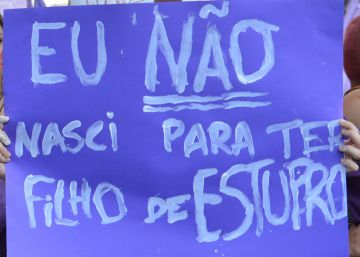 EU NÃO
NASCi PARA TER
FiLHO DE ESTUPRO